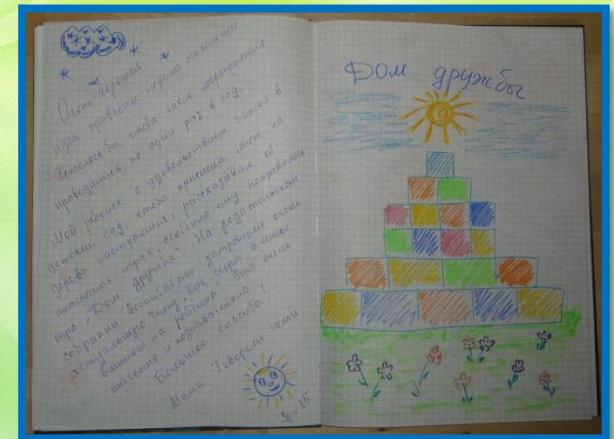 Очень хорошая
идея провести неделю психологии
Хотелось бы, чтобы такие мероприятия
проводились не один раз в год.
Мой ребенок с удовольствием бежал в
детский сад, чтобы прицепить лист на
дерево настроения, рассказывал об
интересных играх, особенно ему понравилась
игра "Дом дружбы". На родительском
собрании воспитатели затронули очень
актуальную тему "Как ссора в семье
влияет на ребенка". Это очень
интересно и познавательно.
Большое спасибо!
Мама
Дом дружбы